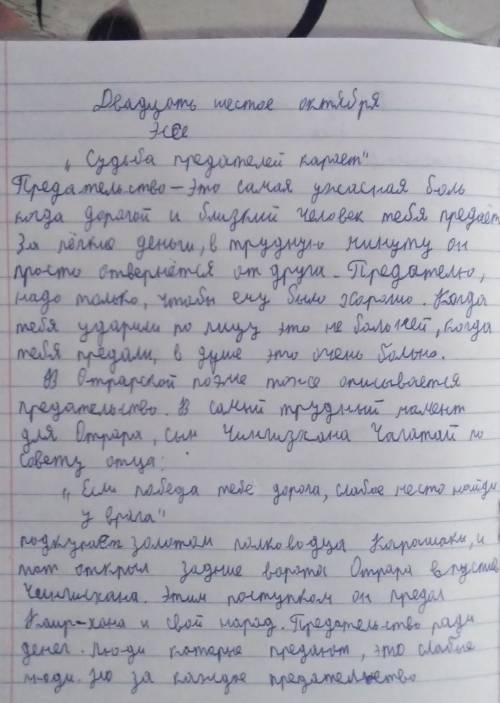 Двадцать шестое октября
Эссе
„Судьба предателей карает"
Предательство – это самая ужасная боль
когда дорогой и близкий человек тебя предаёт
За лёгкие деньги, в трудную минуту он
просто отвернётся от друга. Предателю,
надо только, чтобы ему было хорошо. Когда
тебя ударили по лицу это не больней, когда
тебя предали, в душе это очень больно.
В Отрарской поэме тоже описывается
предательство. В самый трудный момент
для Отрара, сын Чингизхана Чагатай по
совету отца:
„Если победа тебе дорога, слабое место найди
у врага"
подкупает золотом полководца Карашоки, и
тот открыл задние ворота Отрара впустив
Чингисхана. Этим поступком он предал
Каир-хана и свой народ. Предательство ради
денег. Люди которые предают, это слабые
люди. Но за каждое предательство